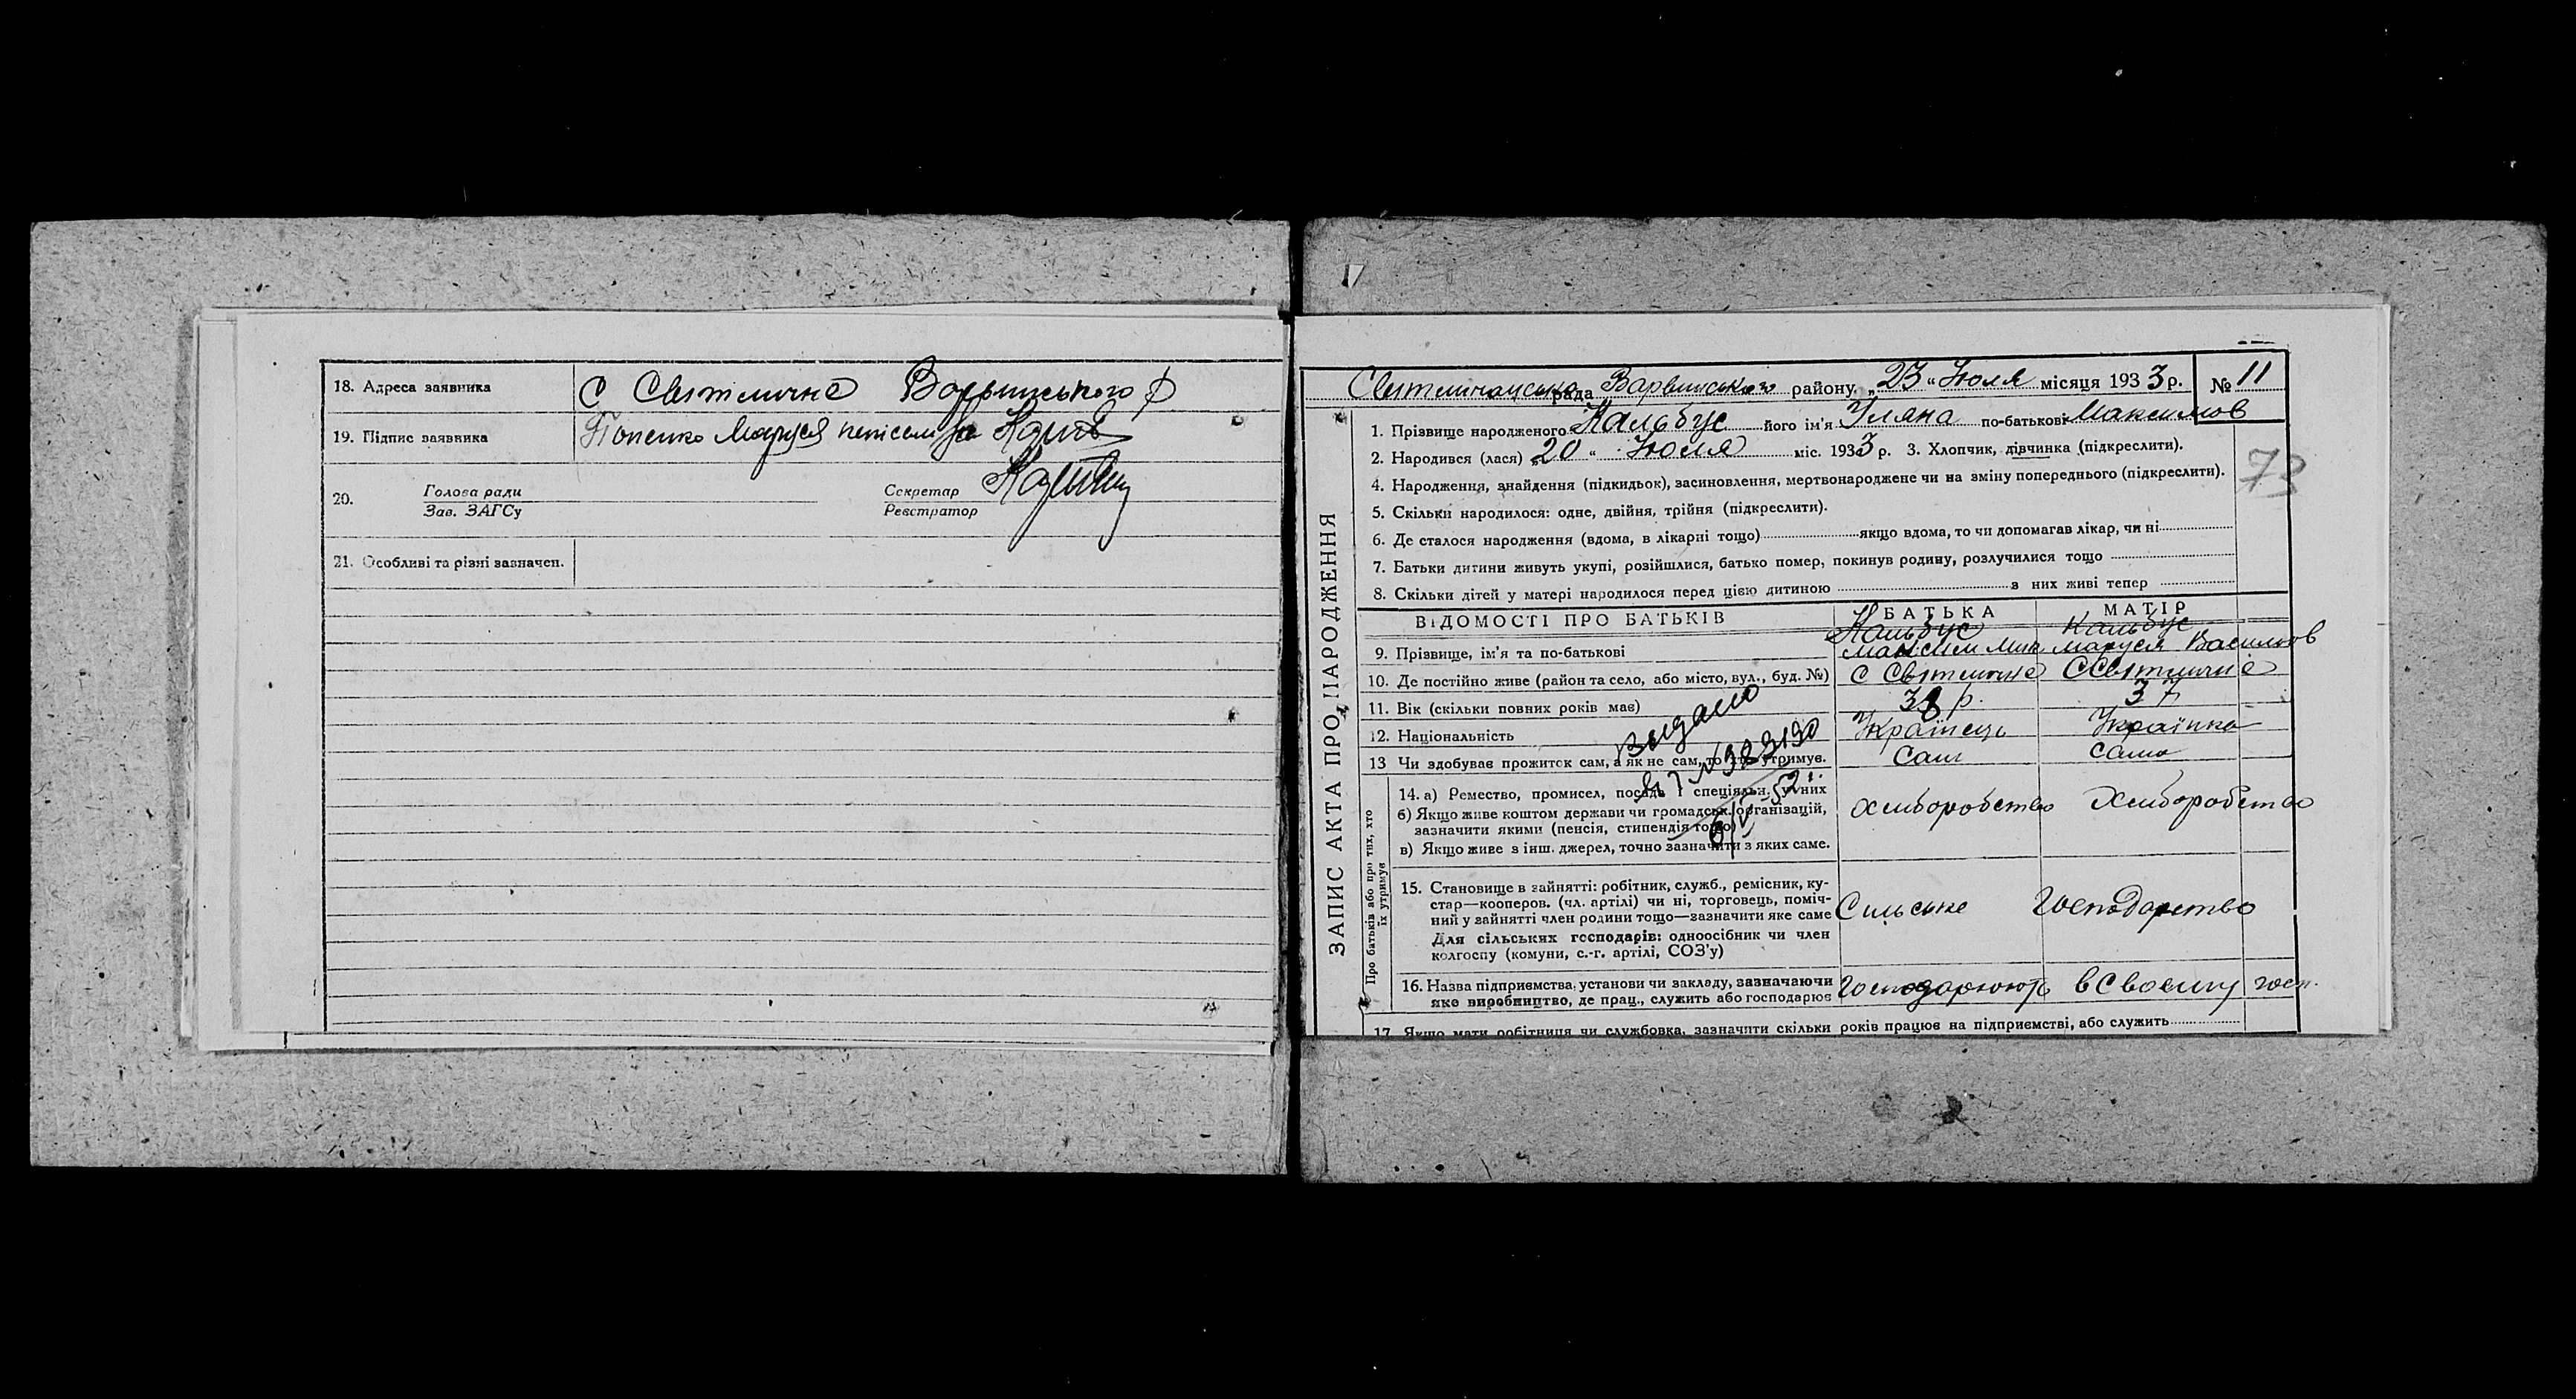 18. Адреса заявника С Світличне Варвинського Р
19. Підпис заявника Попенко Маруся неписьм за
20. Голова ради
Зав. ЗАГСу
Секретар
Реєстратор
21. Особливі та різні зазначен.
17
Світличанська рада Варвинського району „23“ Июля місяця 1933 р. № 11
ЗАПИС АКТА ПРО НАРОДЖЕННЯ
1. Прізвище народженого Кальбус його ім'я Уляна по-батькові Максимов
2. Народився (лася) „20“ Июля міс. 1933 р. 3. Хлопчик, дівчинка (підкреслити).
73
4. Народження, знайдення (підкидьок), засиновлення, мертвонароджене чи на зміну попереднього (підкреслити).
5. Скільки народилося: одне, двійня, трійня (підкреслити).
6. Де сталося народження (вдома, в лікарні тощо) якщо вдома, то чи допомагав лікар, чи ні
7. Батьки дитини живуть укупі, розійшлися, батько помер, покинув родину, розлучилися тощо
8. Скільки дітей у матері народилося перед цією дитиною з них живі тепер
ВІДОМОСТІ ПРО БАТЬКІВ БАТЬКА МАТІР
Кальбус Кальбус
9. Прізвище, ім'я та по-батькові Максим Мик Маруся Васильов
10. Де постійно живе (район та село, або місто, вул., буд. №) С Світличне С Світличне
11. Вік (скільки повних років має) 38 р. 37
12. Національність Українець Українка
13 Чи здобуває прожиток сам, а як не сам, то хто утримує. Сам сама
Видано
№ 923190
Про батьків або про тих, хто їх утримує
14. а) Ремество, промисел, посада і спеціяльн. у них
б) Якщо живе коштом держави чи громадськ. організацій, хліборобство Хліборобство
зазначити якими (пенсія, стипендія тощо)
в) Якщо живе з інш. джерел, точно зазначити з яких саме.
15. Становище в зайнятті: робітник, служб., ремісник, ку-
стар—кооперов. (чл. артілі) чи ні, торговець, поміч-
ний у зайнятті член родини тощо—зазначити яке саме Сільське Господарство
Для сільських господарів: одноосібник чи член
колгоспу (комуни, с.-г. артілі, СОЗ'у)
16. Назва підприємства, установи чи закладу, зазначаючи Господарюють в Своєму госп.
яке виробництво, де прац., служить або господарює
17. Якщо мати робітниця чи службовка, зазначити скільки років працює на підприємстві, або служить